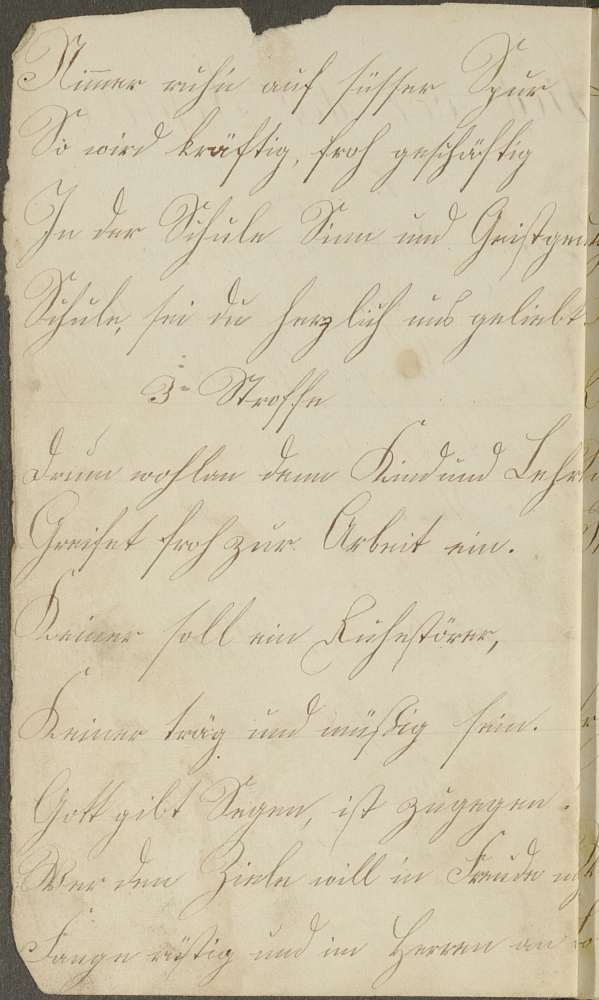 Nimmer ruhn auf süsser Spur
So wird kräftig, froh geschäftig
In der Schule Sinn und Geist
Schule, sei du herzlich uns geliebt
3= Stroffe
Drum wohlan denn Kind und
Greifet froh zur Arbeit ein.
Keiner soll ein Ruhestörer,
Keiner träg und müßig sein.
Gott gibt Segen, ist zugegen.
Wer den Ziele will in Freude
Fange rüstig und im Herren an